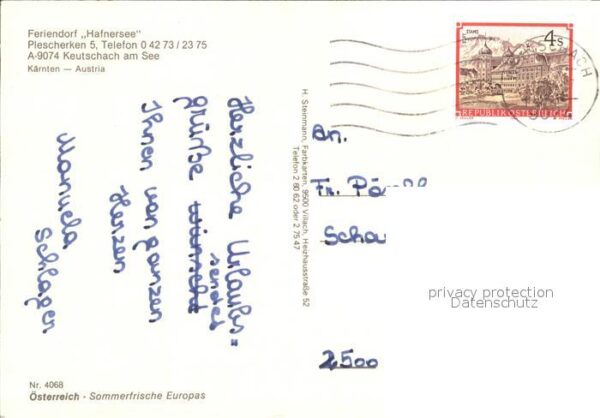 Feriendorf „Hafnersee"
Plescherken 5, Telefon 0 42 73 / 23 75
A-9074 Keutschach am See
Kärnten — Austria
Herzliche Urlaubs=
sendet
grüße wünscht
Ihnen von ganzen
Herzen
Manuela
Schlager.
H. Steinmann, Farbkarten, 9500 Villach, Heizhausstraße 52
Telefon 2 80 62 oder 2 75 47
STIFT STAMS
4 S
REPUBLIK ÖSTERREICH
An.
Fr.
Scha
privacy protection
Datenschutz
2500
Nr. 4068
Österreich - Sommerfrische Europas